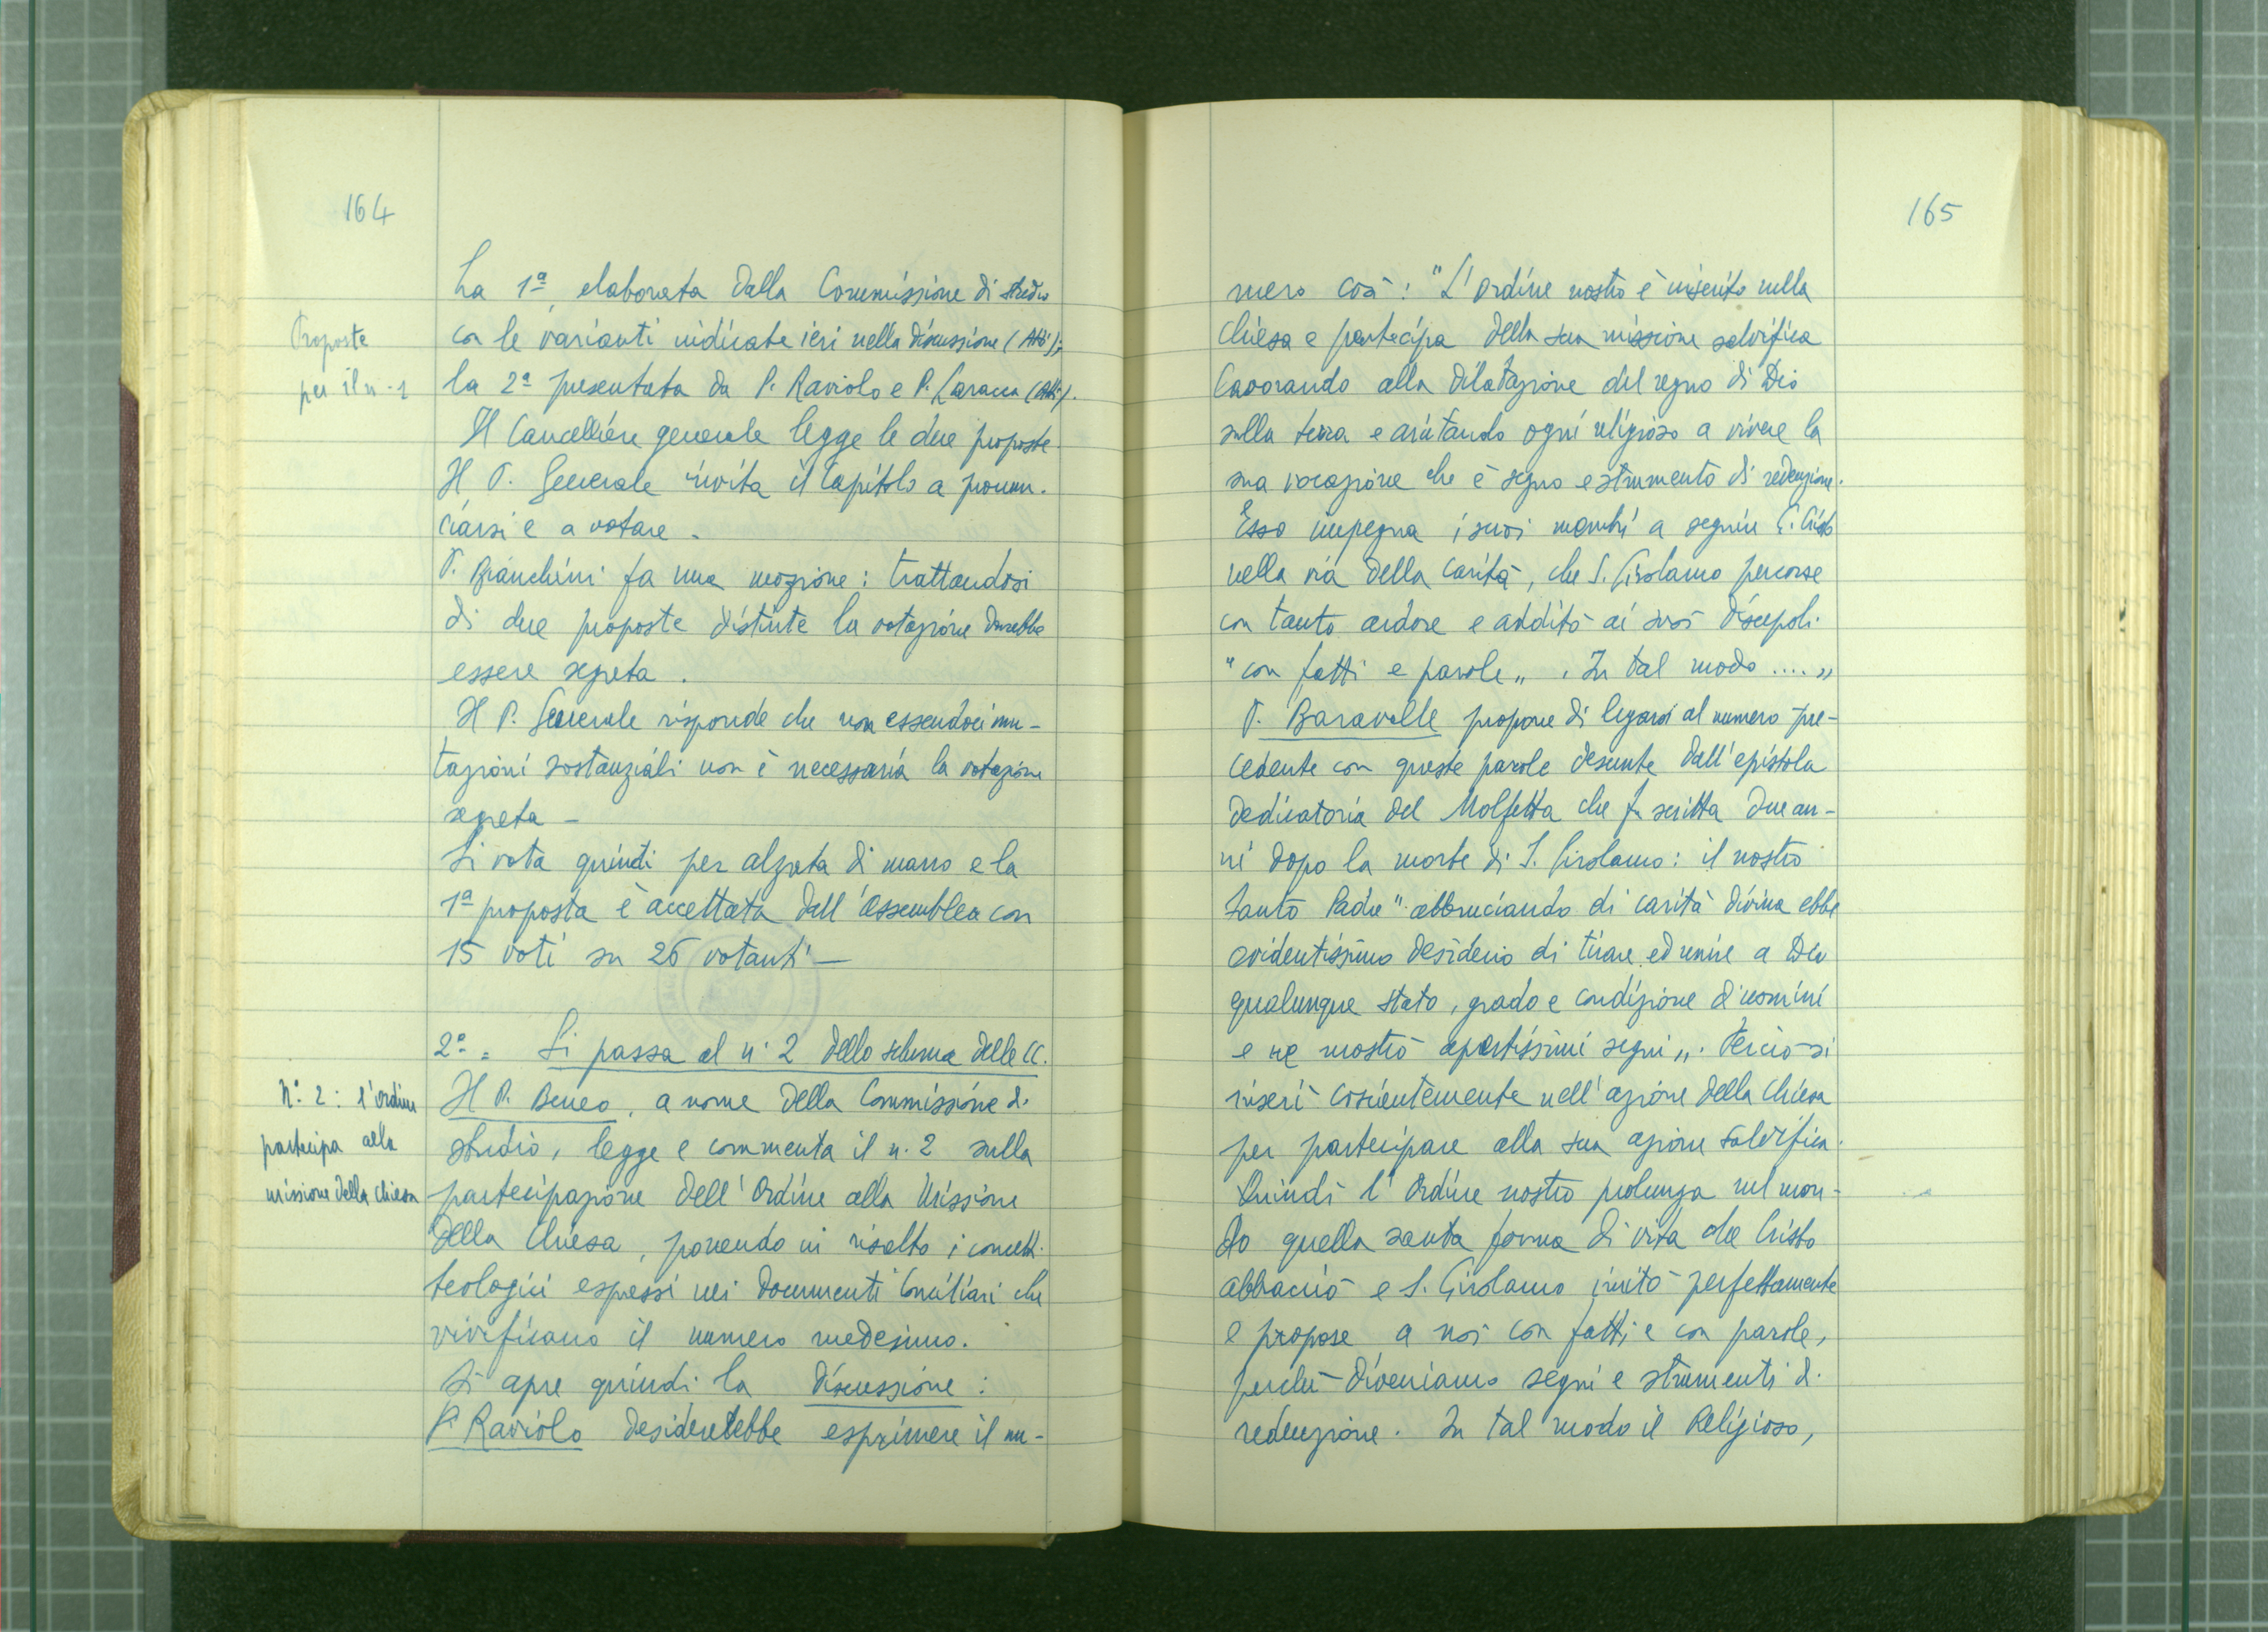 164
Proposte
per il n-1
La 1ª, elaborata dalla Commissione di studio
con le varianti indicate ieri nella discussione (Atti);
la 2ª presentata da P. Raviolo e P. Laracca (Atti).
Il Cancelliere generale legge le due proposte.
Il P. Generale invita il Capitolo a pronun-
ciarsi e a votare.
P. Bianchini fa una mozione: trattandosi
di due proposte distinte la votazione dovrebbe
essere segreta.
Il P. Generale risponde che non essendoci mu-
tazioni sostanziali non è necessaria la votazione
segreta -
Si vota quindi per alzata di mano e la
1ª proposta è accettata dall'assemblea con
15 voti su 26 votanti —
2º = Si passa al n. 2 dello schema delle CC.
N. 2: l'ordine
partecipa alla
missione della Chiesa
Il P. Beneo, a nome della Commissione di
studio, legge e commenta il n. 2 sulla
partecipazione dell'Ordine alla Missione
della Chiesa, ponendo in risalto i concetti
teologici espressi nei documenti Conciliari che
vivificano il numero medesimo.
Si apre quindi la discussione:
P. Raviolo desidererebbe esprimere il nu-
165
mero così: "L'Ordine nostro è inserito nella
Chiesa e partecipa della sua missione salvifica
lavorando alla dilatazione del regno di Dio
sulla terra e aiutando ogni religioso a vivere la
sua vocazione che è segno e strumento di redenzione.
Esso impegna i suoi membri a seguire G. Cristo
nella via della carità, che S. Girolamo percorse
con tanto ardore e additò ai suoi discepoli
"con fatti e parole„. In tal modo ....„
P. Baravalle propone di legarsi al numero pre-
cedente con queste parole desunte dall'epistola
dedicatoria del Molfetta che fu scritta due an-
ni dopo la morte di S. Girolamo: il nostro
Santo Padre "abbruciando di carità divina ebbe
evidentissimo desiderio di tirare ed unire a Dio
qualunque stato, grado e condizione d'uomini
e ne mostrò apertissimi segni„. Perciò si
inserì coscientemente nell'azione della Chiesa
per partecipare alla sua azione salvifica.
Quindi l'Ordine nostro prolunga nel mon-
do quella santa forma di vita che Cristo
abbracciò e S. Girolamo imitò perfettamente
e propose a noi con fatti e con parole,
perché diveniamo segni e strumenti di
redenzione. In tal modo il Religioso,